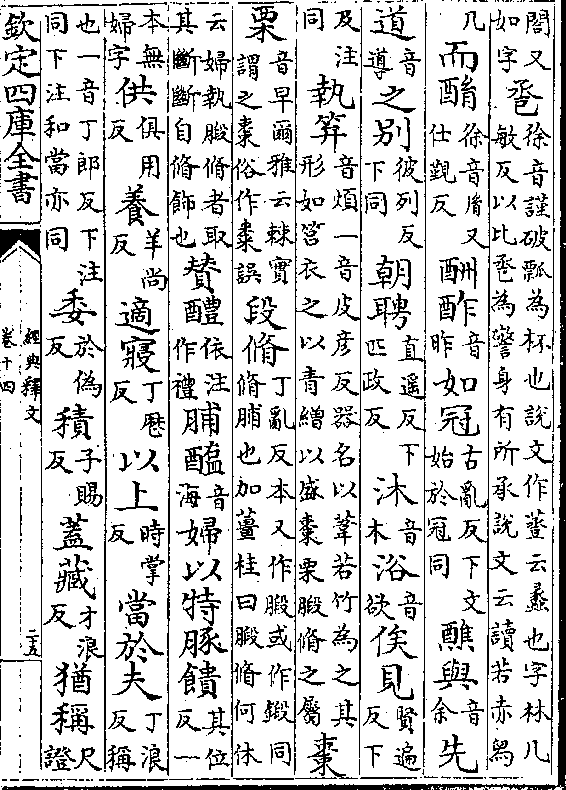 閤又如字卺徐音謹破瓢為杯也說文作𧯷云蠡也字林几敏反以比卺為警身有所承說文云讀若赤舄
几而酳徐音胤又仕覲反酬酢音昨如冠古亂反下文始於冠同醮與音余先
道音導之別彼列反下同朝聘直遥反下匹政反沐音木浴音欲俟見賢遍反下
及注同執笲音煩一音皮彦反器名以葦若竹為之其形如筥衣之以青繒以盛棗栗腶脩之屬棗
栗音早爾雅云棘實謂之棗俗作棗誤段脩丁亂反本又作腶或作鍛同脩脯也加薑桂曰腶脩何休
云婦執腶脩者取其斷斷自脩飾也賛醴依注作禮脯醢音海婦以特豚饋其位反一
本無婦字供俱用反養羊尚反適寢丁歷反以上時掌反當於夫丁浪反稱
也一音丁郎反下注同下注和當亦同委於偽反積子賜反蓋藏才浪反猶稱尺證
欽定四庫全書
經典釋文
卷十四
二十五